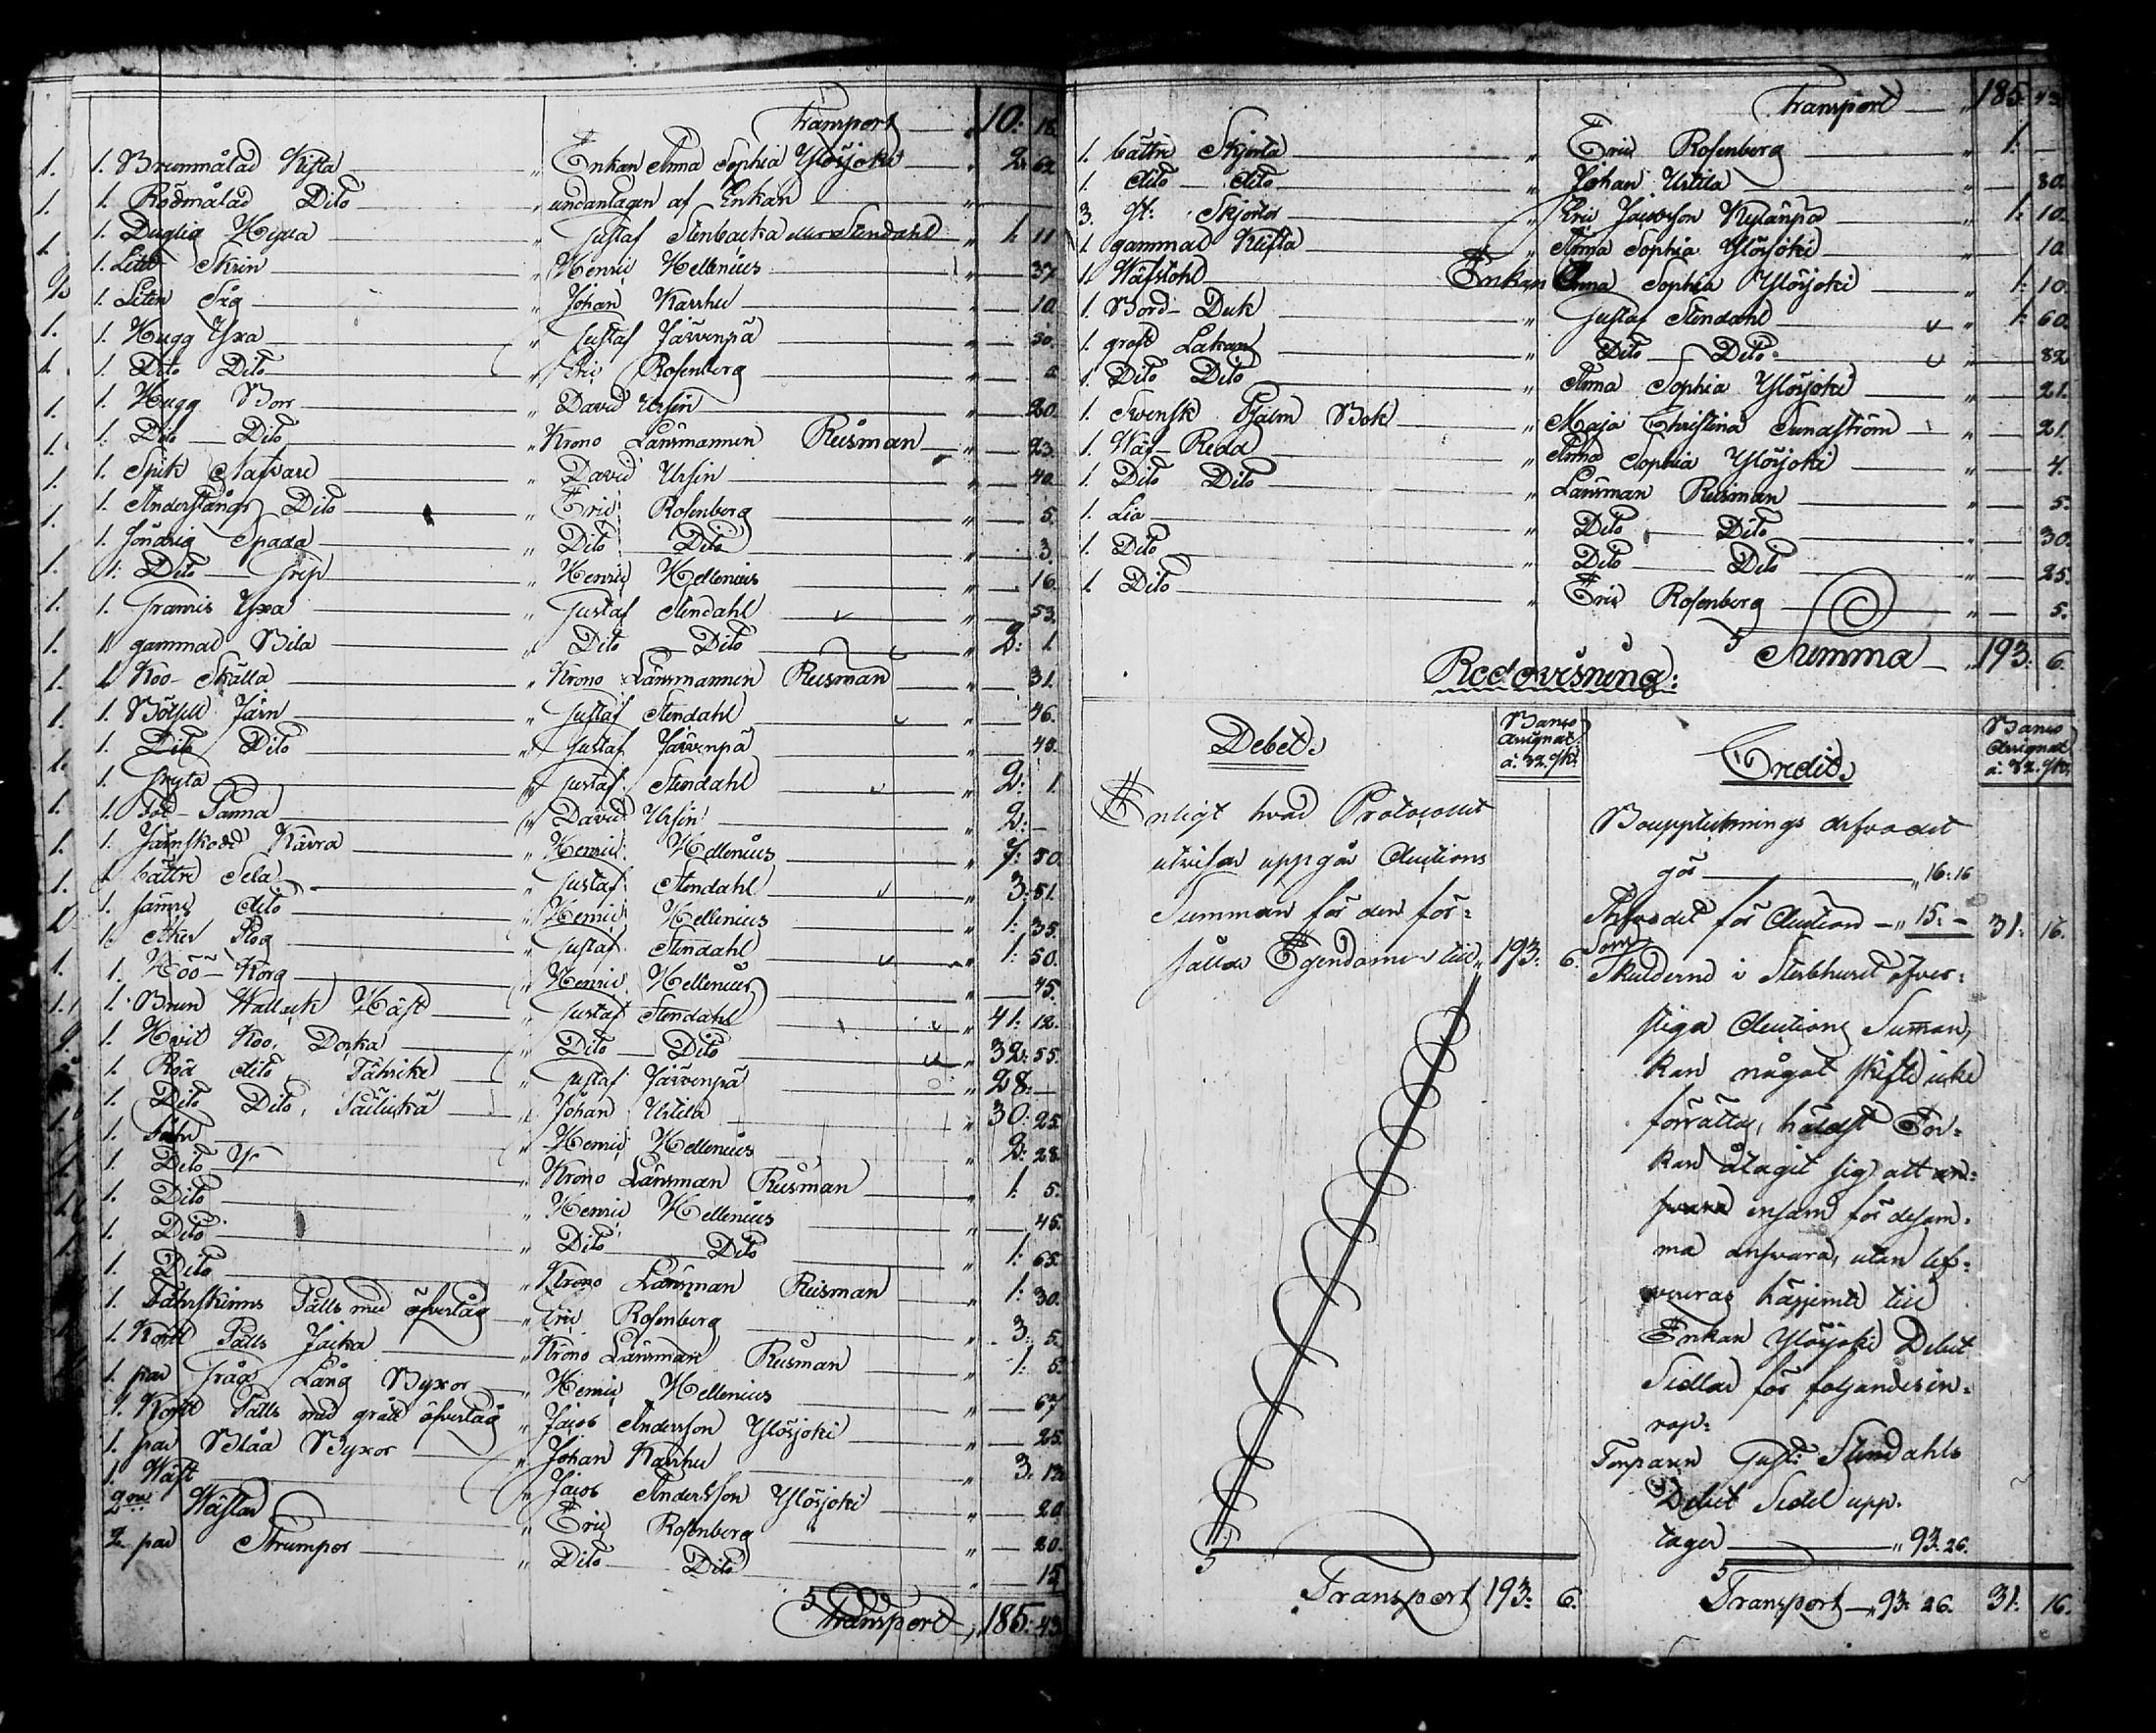 Transport 10: 18.
1. 1. Brunmålad Kista Enkan Anna Sophia Ylösjoki 2: 62
1. 1. Rödmålad Dito undantagen af Enkan
1. 1. Duglig Gustaf Stenbacka Stendahl 1. 11
1. 1. Litet Skrin Henric Hellenius 37.
1. Liten Såg Johan Karrhu 10.
1. 1. Hugg Yxa Gustaf Järvenpä 30.
1. 1. Dito Dito Eric Rosenberg
1. 1. Hugg Borr David Ursin 20.
1. 1. Dito Dito Krono Länsmannen Reisman 23.
1. 1. Spik Nafvare David Ursin 40.
1. 1. Anderstångs Dito Eric Rosenberg 5.
1. Söndrig Spada Dito Dito 3.
1. 1. Dito Grep Henric Hellenius 16.
1. 1. Framis Yxa Gustaf Stendahl 53.
1. 1. gammal Bila Dito Dito 2: 1.
1. 1. Koo-Skälla Krono Länsmannen Reisman 31.
1. 1. Järn Gustaf Stendahl 46.
1. 1. Dito Dito Gustaf Järvenpä 40.
1. 1. Gryta Gustaf Stendahl 2: 1.
1. 1. Panna David Ursin 2: –
1. 1. Järnskodd Kärra Henric Hellenius 7: 50.
1. 1. bättre Sela Gustaf Stendahl 3: 51.
1. sämre dito Henric Hellenius 1: 35.
1. Åker Plog Gustaf Stendahl 1: 50.
1. 1. Höö-Korg Henric Hellenius 45.
1. 1. Brun Wallack Häst Gustaf Stendahl 41: 12.
1. Hvit Koo, Docka Dito Dito 32: 55.
1. Röd dito, Tährike Gustaf Järvenpä 28: –
1. Dito Dito, Johan Urtila 30: 25.
1. Får Henric Hellenius 2: 28.
1. Dito Krono Länsman Reisman 1: 5.
1. Dito Henric Hellenius 45.
1. Dito Dito Dito 1: 65.
1. Dito Krono Länsman Reisman 1: 30.
1. Fährskinns Pälls med öfvertåg Eric Rosenberg 3: 5.
1. Kortt Pälls Jacka Krono Länsman Reisman 1: 5.
1. par Gråa Lång Byxor Henric Hellenius 67.
1. Kortt Pälls med grått öfvertåg Jacob Andersson Ylösjoki 25.
1. par Blåa Byxor Johan Karrhu 3: 12.
1. Wäst Jacob Andersson Ylösjoki 20.
Wästar Eric Rosenberg 20.
2 par Strumpor Dito Dito 15
Transport 185: 43.
Transport 185: 43.
1. bättre Skjorta Eric Rosenberg 1: –
1. dito dito Johan Urtila 30.
3. St: Skjortor Eric Jacobsson Kylänpä 1: 10.
1. gammal Kista Anna Sophia Ylösjoki 10.
1. Wäfstohl Enkan Anna Sophia Ylösjoki 1: 10.
1. Bord-Duk Gustaf Stendahl 1: 60.
1. groft Lakan Dito Dito 32
1. Dito Dito Anna Sophia Ylösjoki 21.
1. Swensk Psalm Bok Maja Christina Sundström 21.
1. Wäf-Redd Anna Sophia Ylösjoki 4.
1. Dito Dito Länsman Reisman 5.
1. Lia Dito Dito 30.
1. Dito Dito Dito 25.
1. Dito Eric Rosenberg 5.
Summa 193: 6.
Redovisning:
Debet.
Banco
Assignat.
à 32. sk.
Enligt hvad Protocollet
utvisar uppgår Auctions
Summan för den för=
sålda Egendomen till 193: 6.
Transport 193: 6.
Credit.
Banco
Assignat.
à 32. sk.
Boupptecknings arfvodet
gör 16: 16
Arfvodet för Auction 15: – 31: 16.
Som
Skulderne i Sterbhuset öfver=
stiga Auctions Suman,
kan något skifte icke
förrättas, häldst En=
kan åtagit sig att an=
ensam för desam=
ma ansvara, utan lef=
vereras härjemte till
Enkan Ylösjoki Debet
Sedlar för följande in=
rop:
Torparen Gust: Stendahls
Debet Sedel upp=
tager 93: 26.
Transport 93: 26. 31: 16.